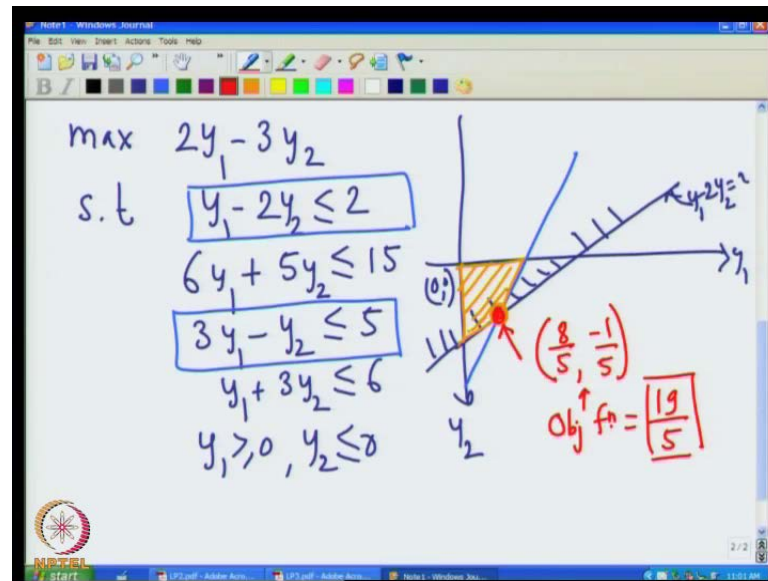 Note1 - Windows Journal
File Edit View Insert Actions Tools Help
B I
max 2y₁ - 3y₂
s.t y₁ - 2y₂ ≤ 2
6y₁ + 5y₂ ≤ 15
3y₁ - y₂ ≤ 5
y₁ + 3y₂ ≤ 6
y₁ ≥ 0, y₂ ≤ 0
y₁ - 2y₂ = 2
y₁
(0,0)
(8/5, -1/5)
Obj fn = 19/5
y₂
2/2
NPTEL
start LP2.pdf - Adobe Acro... LP3.pdf - Adobe Acro... Note1 - Windows Jou... 11:01 AM